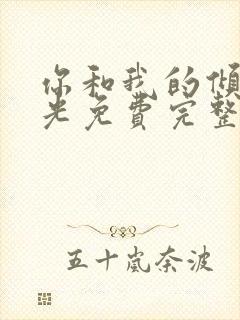 你和我的倾
光免费完整
五十嵐奈波